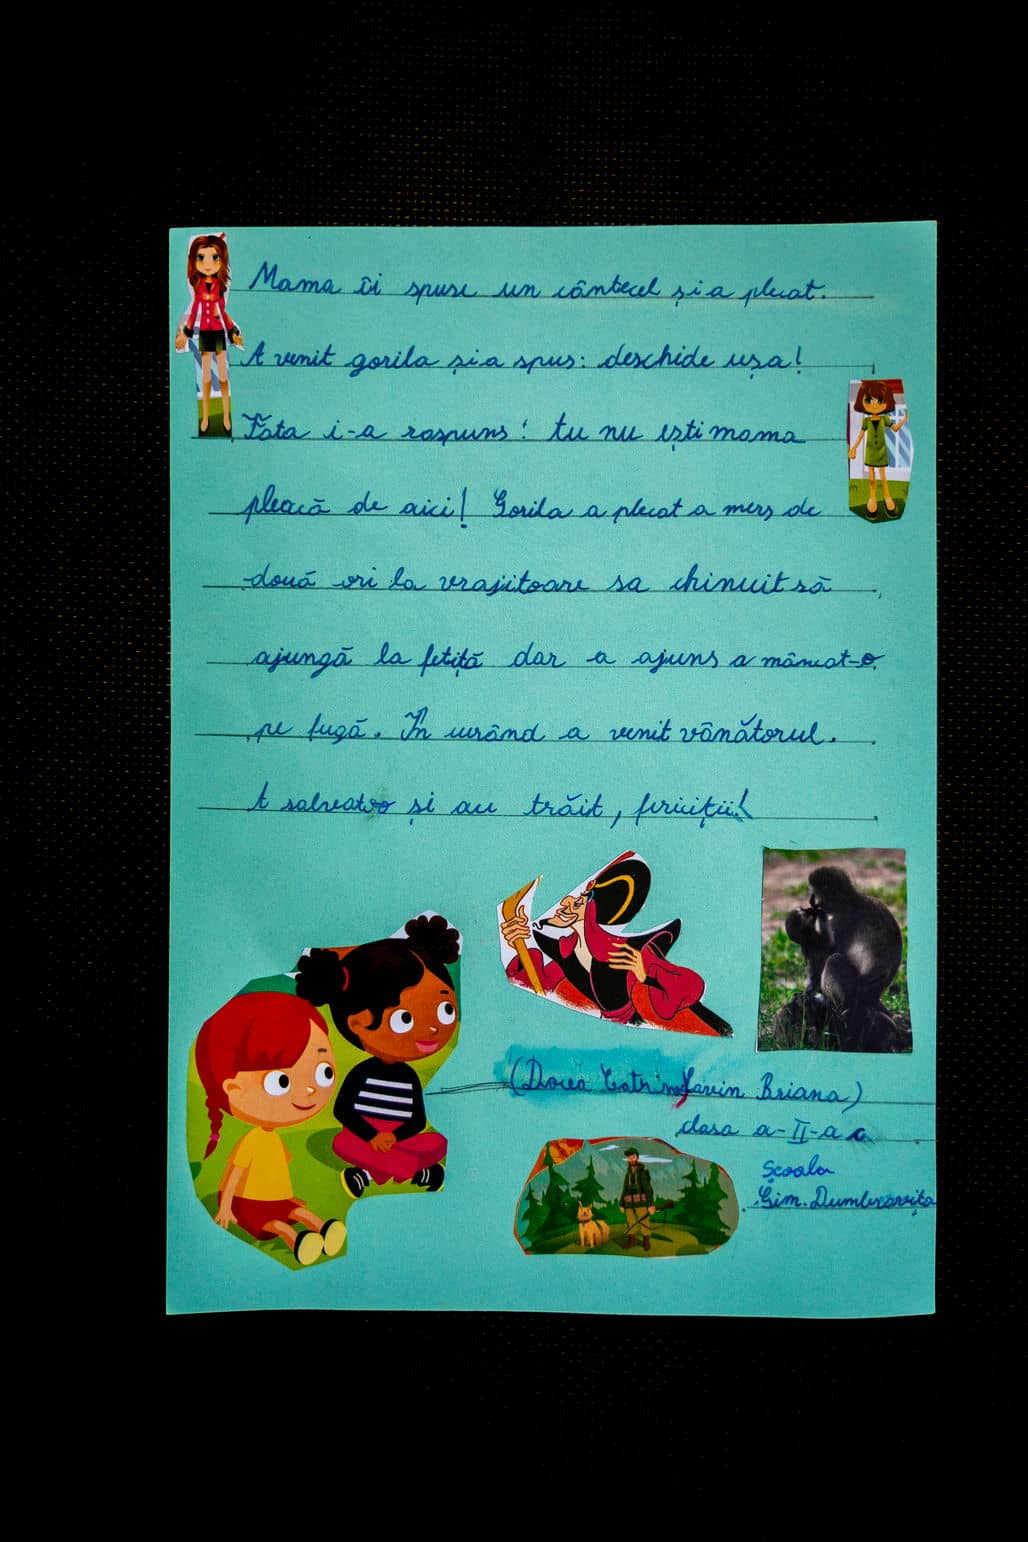 Mama îi spuse un cântecel și a plecat.
A venit gorila și a spus: deschide ușa!
Fata i-a raspuns: tu nu ești mama
pleacă de aici! Gorila a plecat a mers de
două ori la vrajitoare sa chinuit să
ajungă la fetiță dar a ajuns a mâncat-o
pe fugă. În curând a venit vânătorul.
A salvato și au trăit, fericiții!
(Dorea Catrin Lavin Briana)
clasa a-II-a c
Școala
Gim. Dumbravița